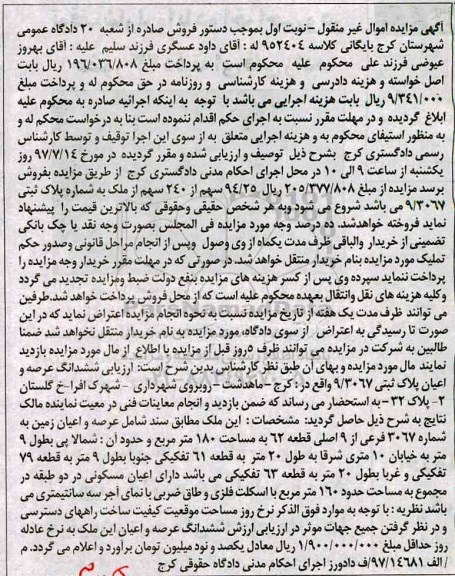 آگهی مزایده اموال غیر منقول -نوبت اول بموجب دستور فروش صادره از شعبه ۲۰ دادگاه عمومی
شهرستان کرج بایگانی کلاسه ۹۵۲۴۰۴ له : آقای داود عسگری فرزند سلیم علیه : آقای بهروز
عیوضی فرزند علی محکوم علیه محکوم است به پرداخت مبلغ ۱۹۶/۰۳۶/۸۰۸ ریال بابت
اصل خواسته و هزینه دادرسی و هزینه کارشناسی و روزنامه در حق محکوم له و پرداخت مبلغ
۹/۳۴۱/۰۰۰ ریال بابت هزینه اجرایی می باشد با توجه به اینکه اجرائیه صادره به محکوم علیه
ابلاغ گردیده و در مهلت مقرر نسبت به اجرای حکم اقدام ننموده است بنا به درخواست محکم له و
به منظور استیفای محکوم به و هزینه اجرایی متعلق به از سوی این اجرا توقیف و توسط کارشناس
رسمی دادگستری کرج بشرح ذیل توصیف و ارزیابی شده و مقرر گردیده در مورخ ۹۷/۷/۱۴ روز
یکشنبه از ساعت ۹ الی ۱۰ در محل اجرای احکام مدنی دادگستری کرج از طریق مزایده بفروش
برسد مزایده از مبلغ ۲۰۵/۳۷۷/۸۰۸ ریال ۹۴/۲۵ سهم از ۲۴۰ سهم از ملک به شماره پلاک ثبتی
۹/۳۰۶۷ می باشد شروع می شود وبه هر شخص حقیقی وحقوقی که بالاترین قیمت را پیشنهاد
نماید فروخته خواهدشد. ده درصد وجه مورد مزایده فی المجلس بصورت وجه نقد یا چک بانکی
تضمینی از خریدار والباقی ظرف مدت یکماه از وی وصول وپس از انجام مراحل قانونی وصدور حکم
تملیک مورد مزایده بنام خریدار منتقل خواهد شد. در صورتی که در مهلت مقرر خریدار وجه مزایده را
پرداخت ننماید سپرده وی پس از کسر هزینه های مزایده بنفع دولت ضبط ومزایده تجدید می گردد
وکلیه هزینه های نقل وانتقال بعهده محکوم علیه است که از محل فروش پرداخت خواهد شد.طرفین
می توانند ظرف مدت یک هفته از تاریخ مزایده نسبت به نحوه انجام مزایده اعتراض نماید که در این
صورت تا رسیدگی به اعتراض از سوی دادگاه، مورد مزایده به نام خریدار منتقل نخواهد شد ضمنا
طالبین به شرکت در مزایده می توانند ظرف ۵روز قبل از مزایده با اطلاع از مال مورد مزایده بازدید
نمایند مال مورد مزایده و بهای آن طبق نظر کارشناس بدین شرح است: ارزیابی ششدانگ عرصه و
اعیان پلاک ثبتی ۹/۳۰۶۷ واقع در : کرج -ماهدشت- روبروی شهرداری - شهرک افرا-خ گلستان
۲- پلاک ۳۲-به استحضار می رساند که ضمن بازدید و انجام معاینات فنی در معیت نماینده مالک
نتایج به شرح ذیل حاصل گردید: مشخصات : این ملک مطابق سند شامل عرصه و اعیان زمین به
شماره ۳۰۶۷ فرعی از ۹ اصلی قطعه ۶۲ به مساحت ۱۸۰ متر مربع و حدود آن : شمالا پی بطول ۹
متر به خیابان ۱۰ متری شرقا به طول ۲۰ متر به قطعه ۶۱ تفکیکی جنوبا بطول ۹ متر به قطعه ۷۹
تفکیکی و غربا بطول ۲۰ متر به قطعه ۶۳ تفکیکی می باشد دارای اعیان مسکونی در دو طبقه در
مجموع به مساحت حدود ۱۶۰ متر مربع با اسکلت فلزی و طاق ضربی با نمای آجر سه سانتیمتری می
باشد نظریه : با توجه به موارد فوق الذکر نرخ روز مساحت موقعیت کیفیت ساخت راههای دسترسی
و در نظر گرفتن جمیع جهات موثر در ارزیابی ارزش ششدانگ عرصه و اعیان این ملک به نرخ عادله
روز حداقل مبلغ ۱/۹۰۰/۰۰۰/۰۰۰ ریال معادل یکصد و نود میلیون تومان برآورد و اعلام می گردد. م
/ الف ۹۷/۱۴۶۸۱/ف دادورز اجرای احکام مدنی دادگاه حقوقی کرج